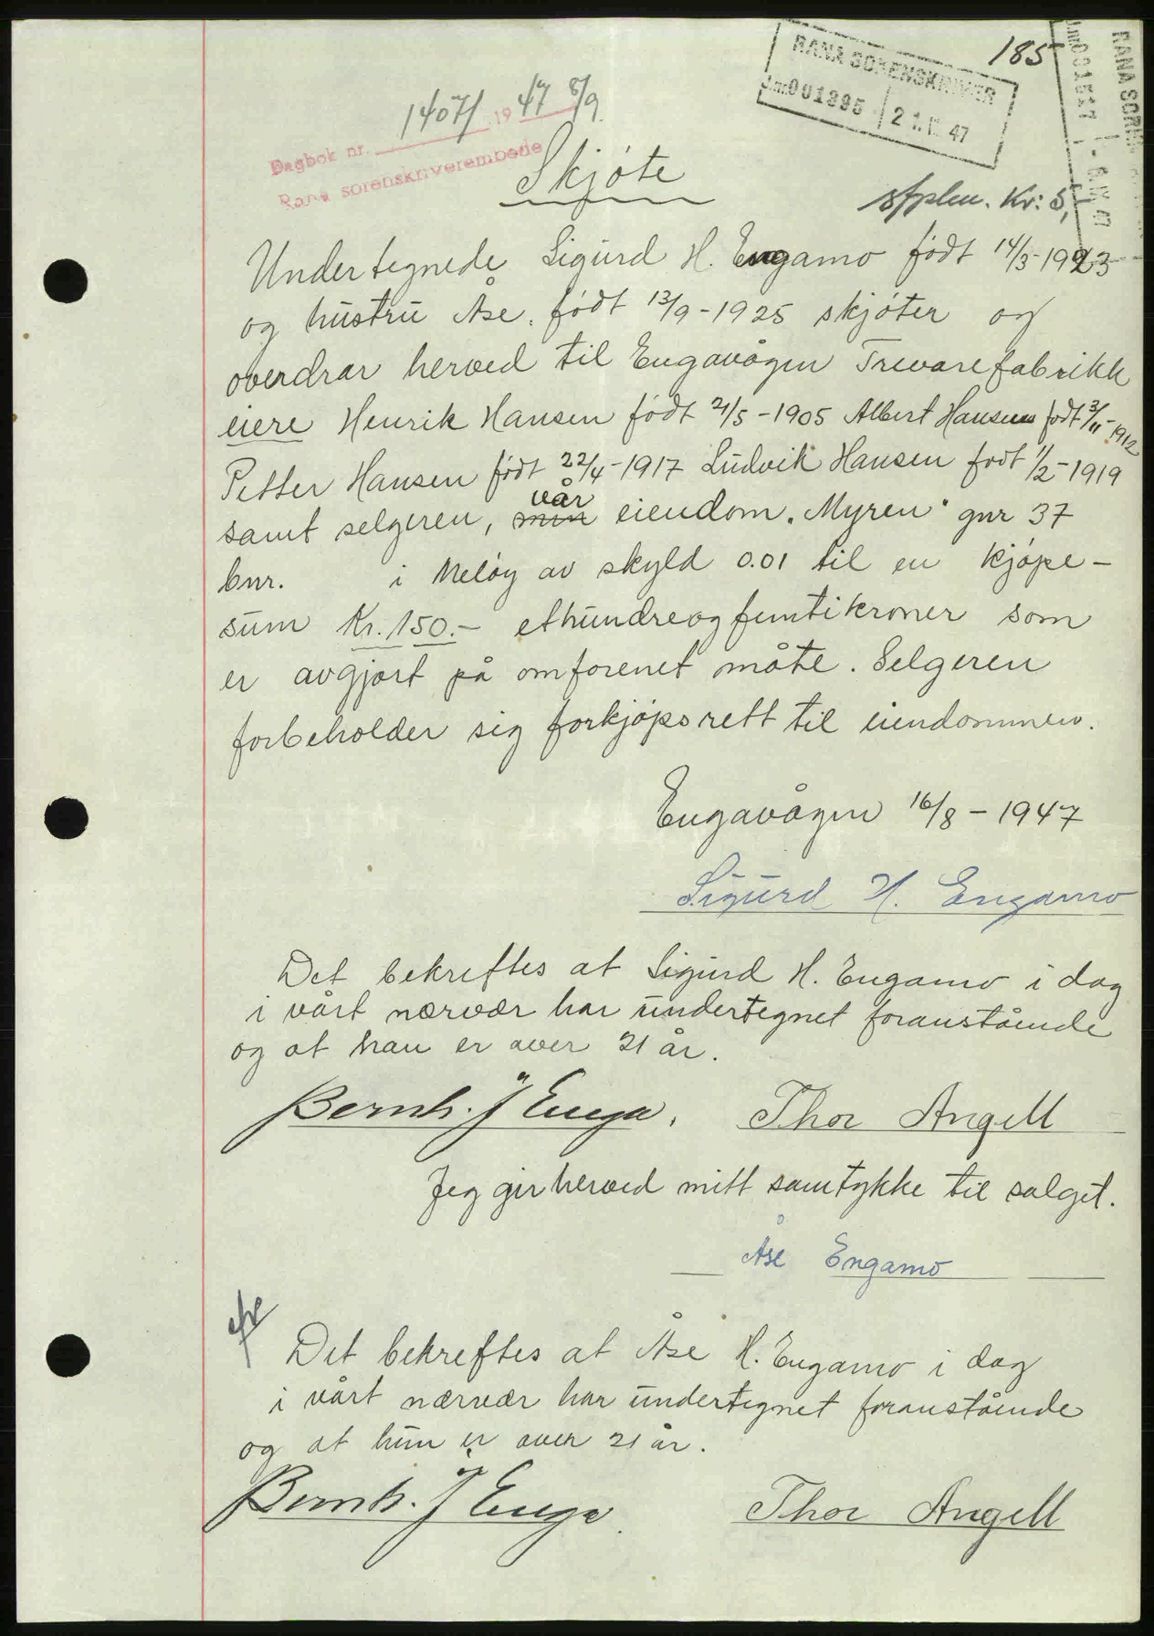 185
RANA SORENSKRIVER
J.nr. 001395 21. 47
RANA SOREN
J.nr. 001517 - 6. IX 47
1407/ 1947 8/9
Dagbok nr.
Rana sorenskriverembede
Skjøte
stplm. Kr: 5,
Undertegnede Sigurd H. Engamo født 14/3-1923
og hustru Åse, født 13/9-1925 skjøter og
overdrar herved til Engavågen Trevarefabrikk
eiere Henrik Hansen født 21/5-1905 Albert Hansen født 3/11-1912
Petter Hansen født 22/4-1917 Ludvik Hansen født 1/2-1919
samt selgeren, min vår eiendom „Myren" gnr 37
bnr. i Meløy av skyld 0.01 til en kjøpe-
sum Kr. 150.- ethundreogfemtikroner som
er avgjort på omforenet måte. Selgeren
forbeholder sig forkjøpsrett til eiendommen.
Engavågen 16/8-1947
Sigurd H. Engamo
Det bekreftes at Sigurd H. Engamo i dag
i vårt nærvær har undertegnet foranstående
og at han er over 21 år.
Bernh. J Enga. Thor Angell
Jeg gir herved mitt samtykke til salget.
Åse Engamo
Det bekreftes at Åse H. Engamo i dag
i vårt nærvær har undertegnet foranstående
og at hun er over 21 år.
Bernh. J Enga Thor Angell